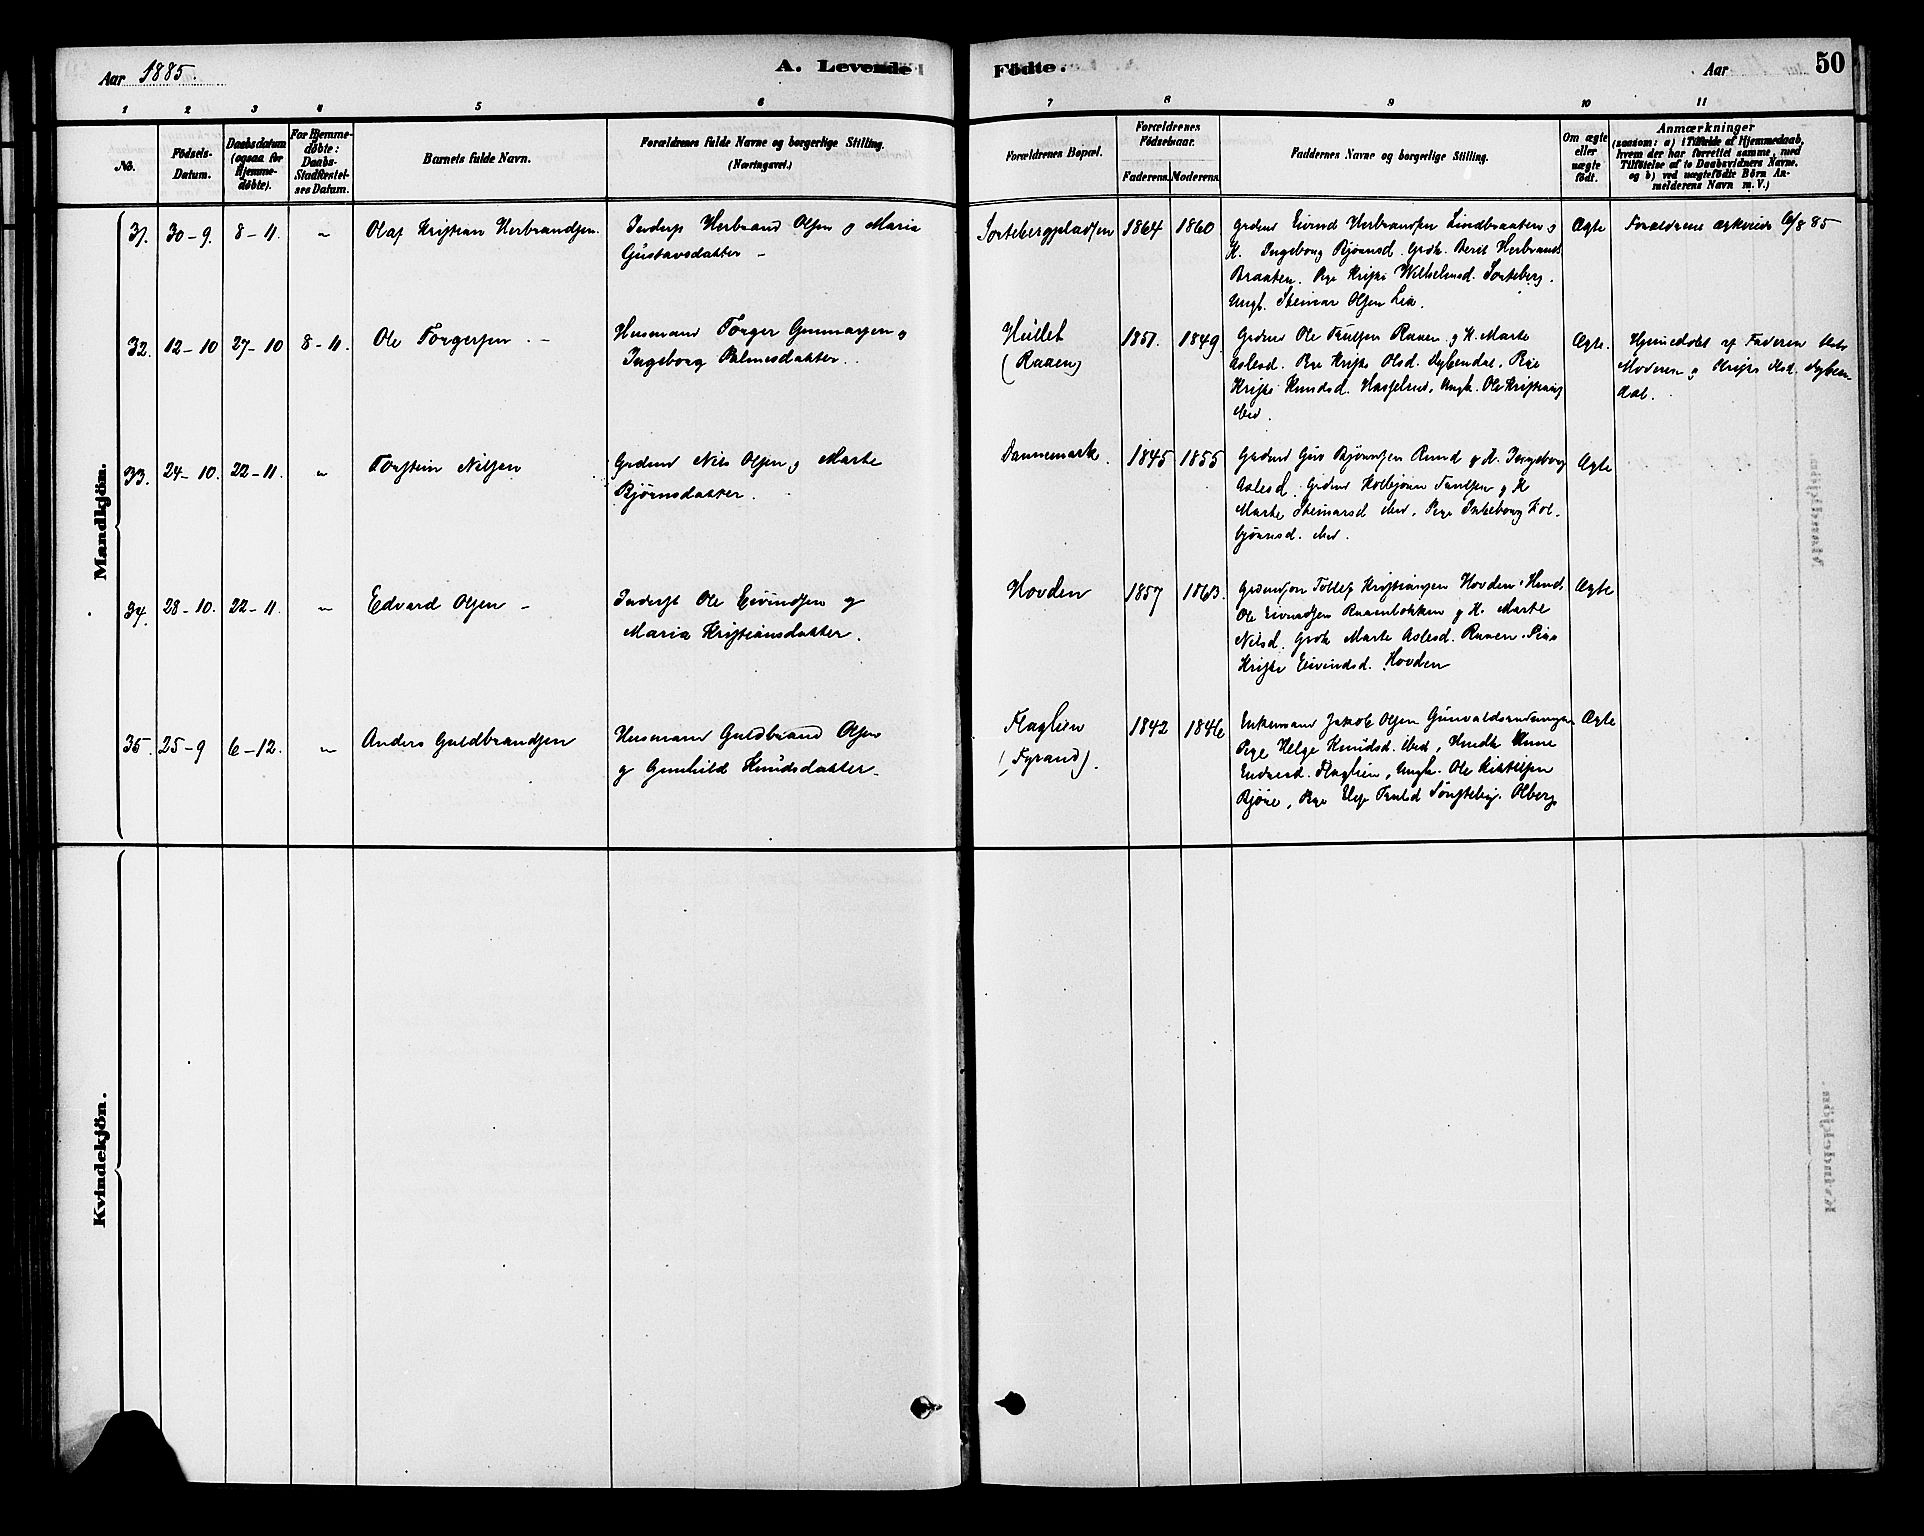 Aar 1885.
A. Levende Födte.
Aar
50
1 2 3 4 5 6 7 8 9 10 11
No.
Födsels-
Datum.
Daabsdatum
(ogsaa for
Hjemme-
döbte).
For Hjemme-
döbte:
Daabs-
Stadfæstel-
ses Datum.
Barnets fulde Navn.
Forældrenes fulde Navne og borgerlige Stilling.
(Næringsvei.)
Forældrenes Bopæl.
Forældrenes
Födselsaar.
Faderens. Moderens.
Faddernes Navne og borgerlige Stilling.
Om ægte
eller
uægte
født.
Anmærkninger
(saasom: a) i Tilfælde af Hjemmedaab,
hvem der har forrettet samme, med
Tilföielse af to Daabsvidners Navne,
og b) ved uægtefödte Börn An-
melderens Navn m. V.)
Mandkjön.
31. 30-9. 8-11. " Olaf Kristian Herbrandsen.
Inderst Herbrand Olsen og Maria
Gustavsdatter
Sortebergpladsen 1864 1860
Grdmd Eivind Herbrandsen Lindbraaten og
K. Ingeborg Bjørnsd. Grdk. Berit Herbrandsd
Braaten. Pige Kristi Wilhelmsd. Sorteberg.
Ungk. Steinar Olsen Lia.
Ægte
Forældrene ægteviet 6/8 85
32. 12-10 27-10 8-11. Ole Torgersen
Husmand Torger Gunnarsen og
Ingeborg Palmesdatter.
Hullet
(Raaen)
1851. 1849.
Grdmd Ole Paulsen Raaen og K. Marte
Aslesd. Pige Kristi Olsd. Dybendal, Pige
Kristi Knudsd. , Ungk. Ole Kristians
ibid.
Ægte.
Hjemmedøbt af Faderen
Moderen og Kristi Olsd. Dyben-
dal.
33. 24-10. 22-11. " Torstein Nilsen
Grdmd Nils Olsen og Marte
Bjørnsdatter.
Dannemark. 1845 1855
Grdmd Guv Bjørnsen Rund og K. Ingeborg
Aslesd. Grdmd Kolbjørn Paulsen og K
Marte Steinarsd ibid, Pige Ingeborg Kol-
bjørnsd. ibid.
Ægte
34. 28-10. 22-11. " Edvard Olsen
Inderst Ole Eivindsen og
Maria Kristiansdatter.
Hovden 1857 1863.
Grdmdsøn Tollef Kristiansen Hovden. Husmd.
Ole Eivindsen Raaenbakken og K. Marte
Nilsd. Grdk Marte Aslesd. Raaen. Pige
Kristi Eivindsd. Hovden
Ægte
35. 25-9 6-12. " Anders Guldbrandsen
Husmand Guldbrand Olsen
og Gunhild Knudsdatter.
Flaglien
(Fyrand).
1842 1846
Enkemand Jakob Olsen
Pige Helge Knudsd. ibid, Husmdk Anne
Endresd. Flaglien, Ungk. Ole Kittelsen
Bjøre, Pige
Ægte
Kvindekjön.